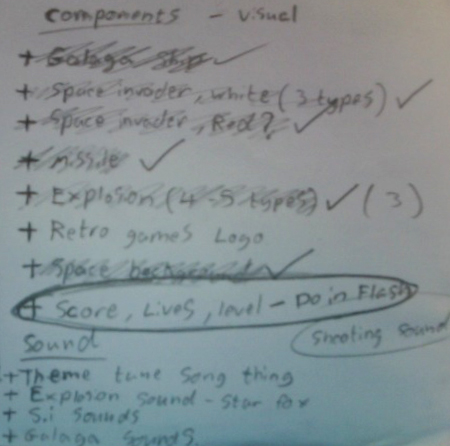 components - visual
+ Galaga ship ✓
+ Space invader, white (3 types) ✓
+ Space invader, Red? ✓
+ missile ✓
+ Explosion (4-5 types) ✓ (3)
+ Retro games Logo
+ Space background ✓
+ Score, Lives, level - Do in Flash
Shooting Sound
Sound
+ Theme tune song thing
+ Explosion sound - star fox
+ S.i sounds
+ Galaga sounds